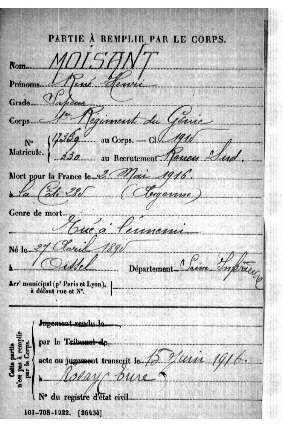 PARTIE À REMPLIR PAR LE CORPS.
Nom MOISANT
Prénoms René Henri
Grade Sapeur
Corps 1er Régiment du Génie
N° 17369 au Corps. — Cl. 1910
Matricule. 230 au Recrutement Rouen Sud
Mort pour la France le 2 Mai 1916
à La Côte 285 (Argonne)
Genre de mort
Tué à l'ennemi
Né le 27 Avril 1890
à Oissel Département Seine Inférieure
Arrt municipal (pr Paris et Lyon),
à défaut rue et N°.
Cette partie
n'est pas à remplir
par le Corps.
Jugement rendu le
par le Tribunal de
acte ou jugement transcrit le 15 Juin 1916
à Rosay Eure
N° du registre d'état civil
101-708-1922. [26435]